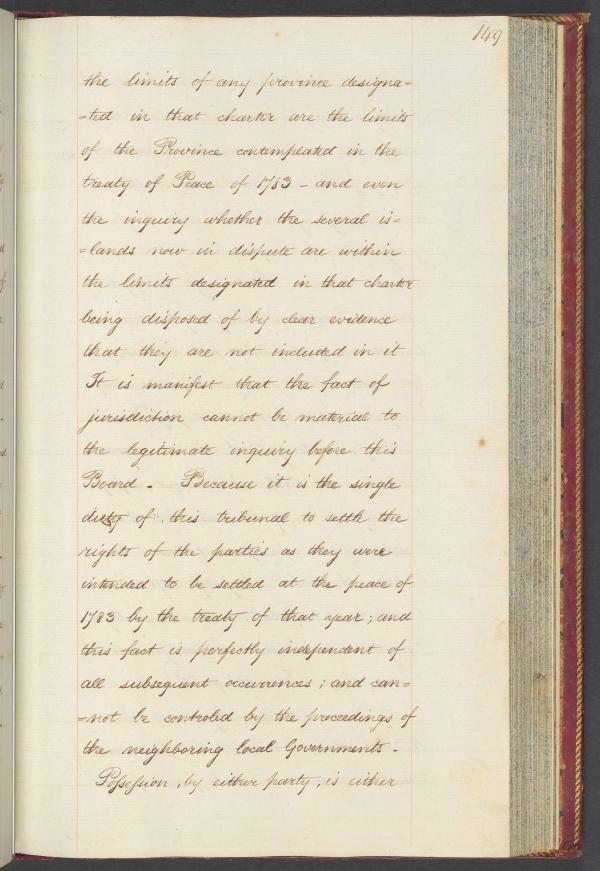 149
the limits of any province designa=
=ted in that charter are the limits
of the Province contemplated in the
treaty of Peace of 1783 - and even
the inquiry whether the several is=
=lands now in dispute are within
the limits designated in that charter
being disposed of by clear evidence
that they are not included in it
It is manifest that the fact of
jurisdiction cannot be material to
the legitimate inquiry before this
Board - Because it is the single
duty of this tribunal to settle the
rights of the parties as they were
intended to be settled at the peace of
1783 by the treaty of that year; and
this fact is perfectly independent of
all subsequent occurrences; and can=
=not be controled by the proceedings of
the neighboring local Governments -
Possession, by either party, is either